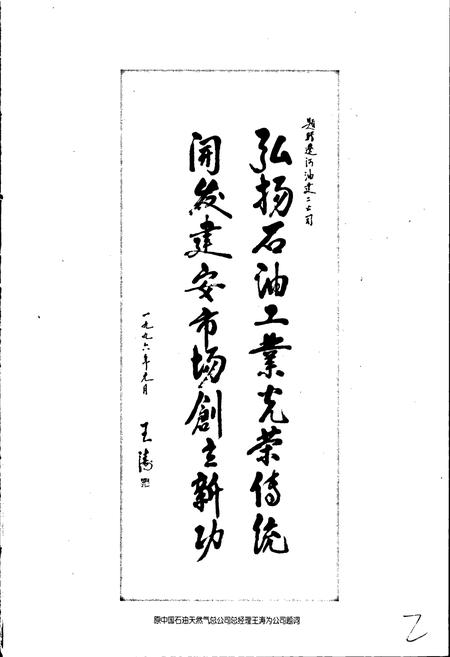 题赠辽河油建二公司
弘扬石油工業光荣傳统
開发建安市场創立新功
一九九六年元月
王涛
原中国石油天然气总公司总经理王涛为公司题词